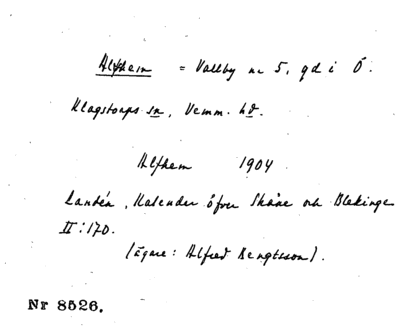 Alfhem = Vallby nr 5, gd i Ö.
Klagstorps sn, Vemm. hd.
Alfhem 1904
Landén, Kalender öfver Skåne och Blekinge
II:170.
(ägare: Alfred Bengtsson).
Nr 8526.